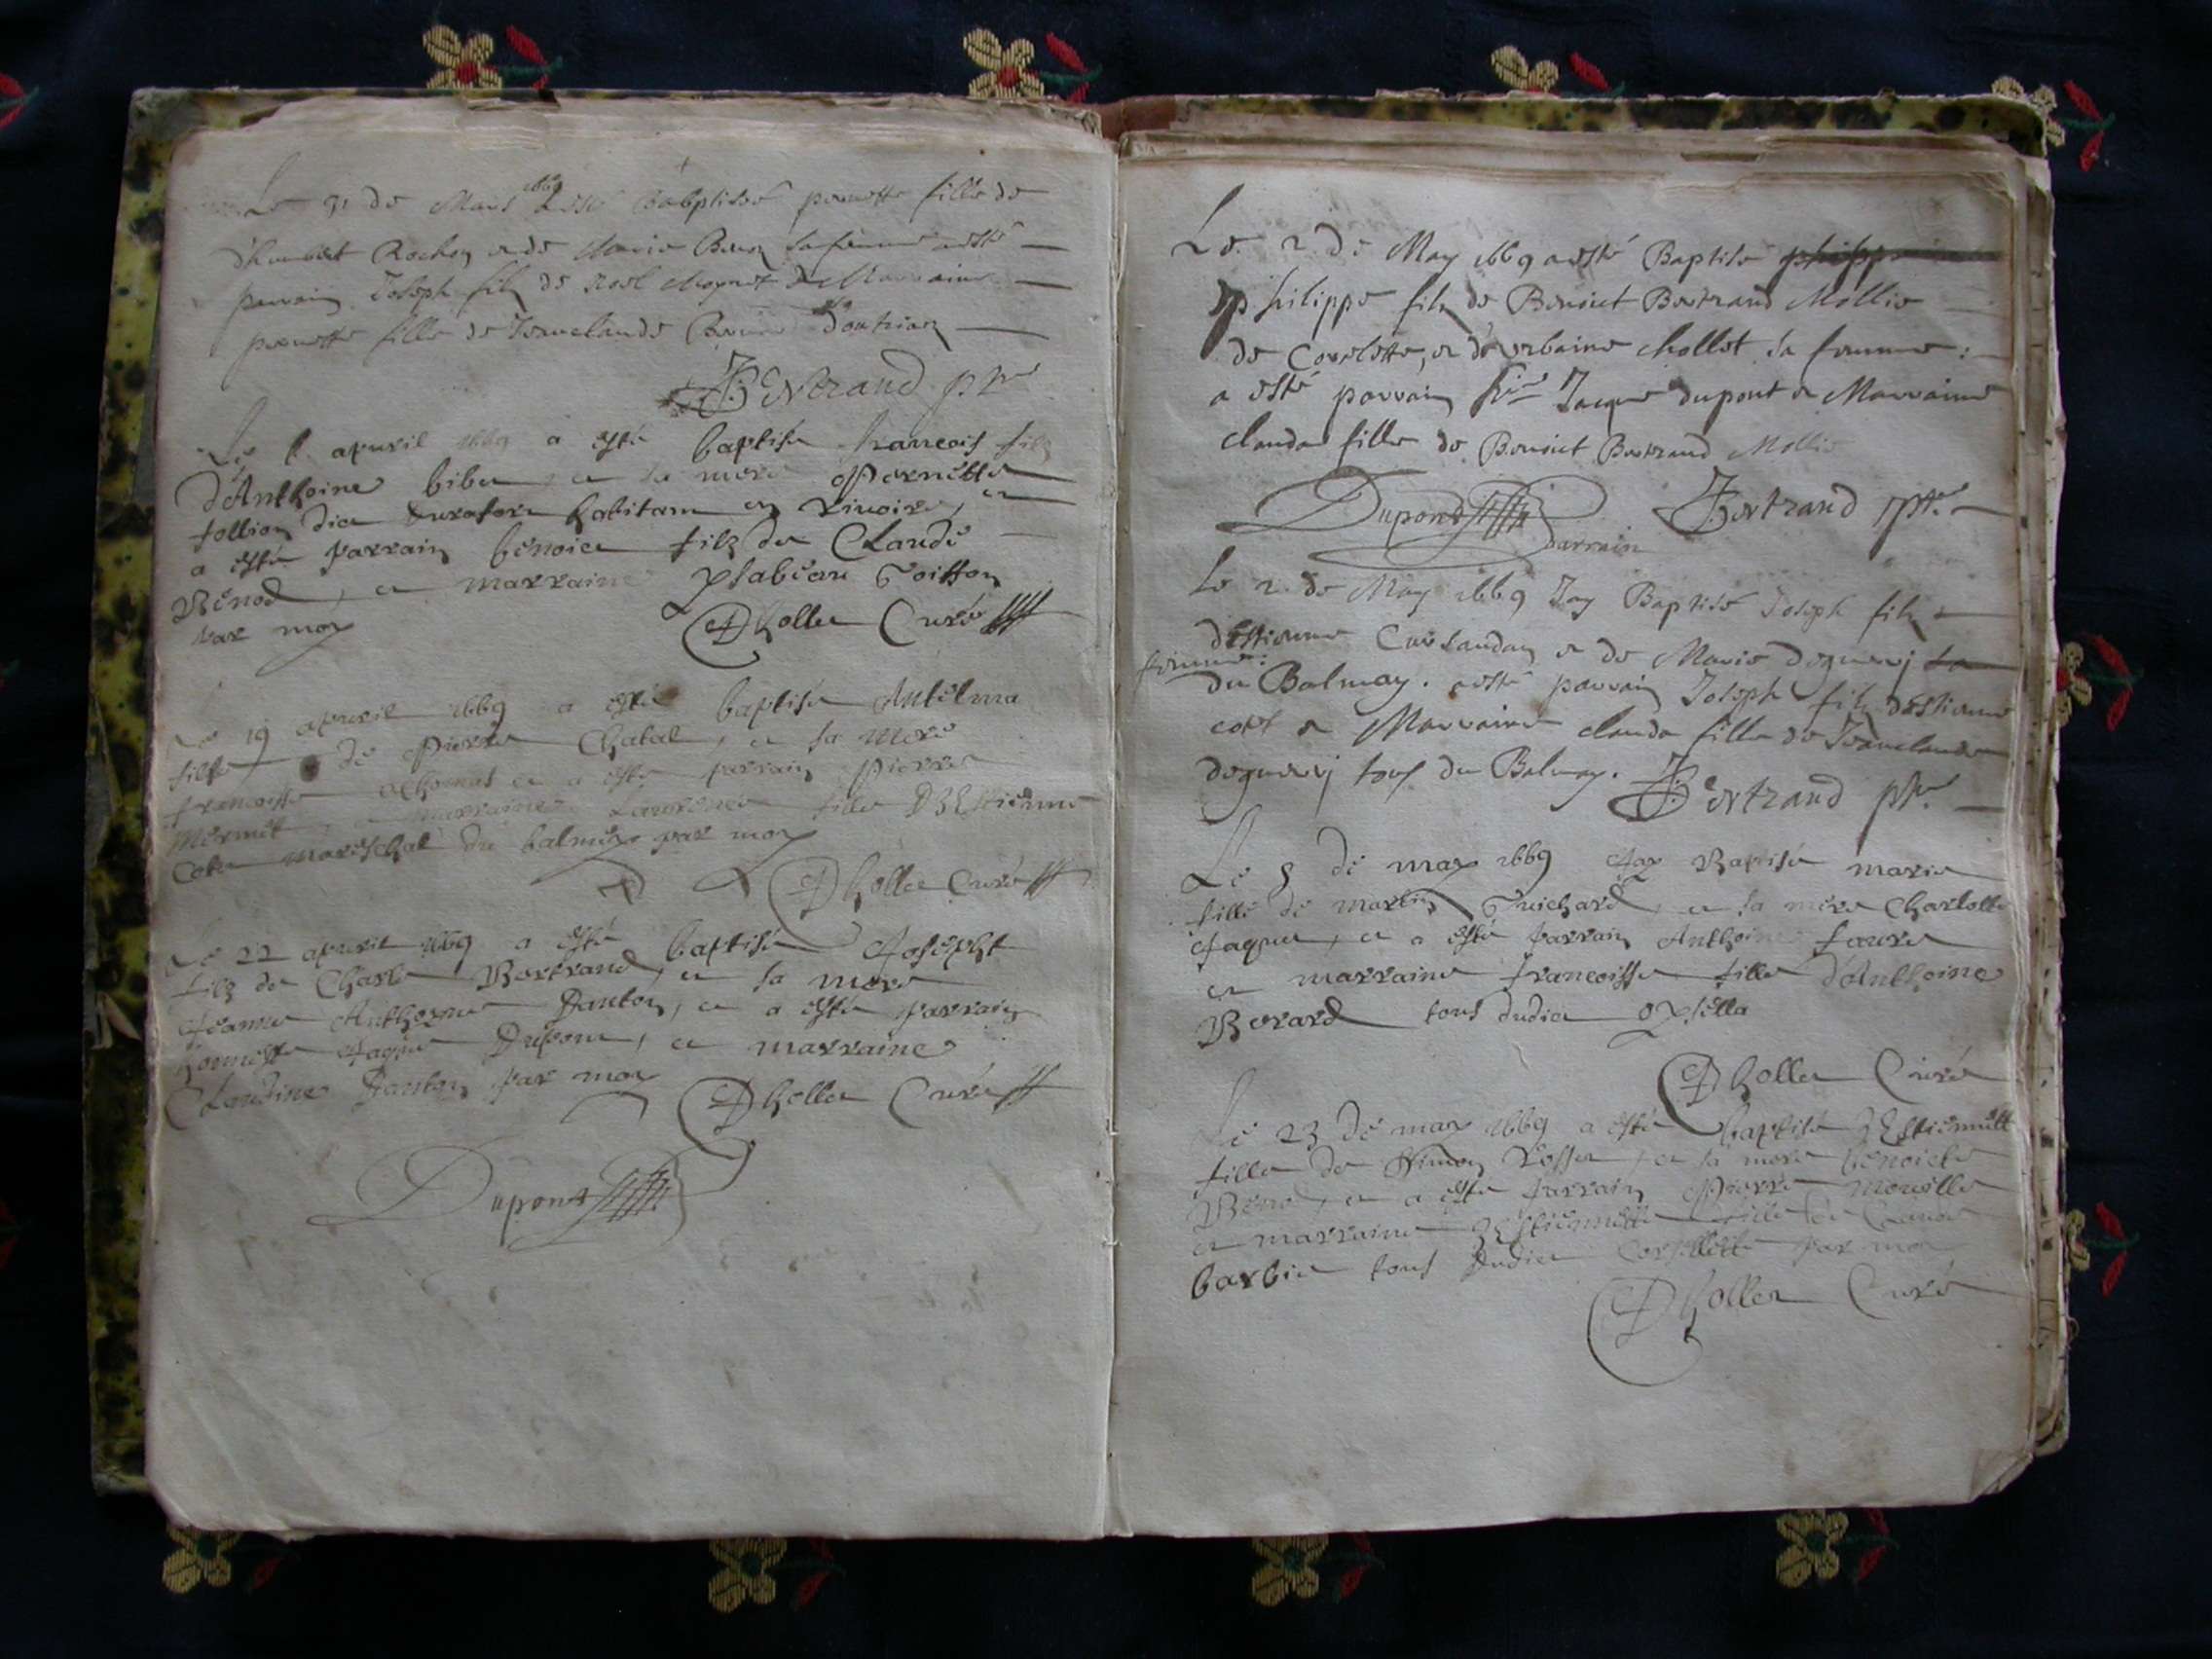 Le 31 de Mars 1669 a esté baptisée pernette fille de
Rochon et de Marie sa femme a esté
parrain Joseph filz de Noel et Marraine
pernette fille de Jeanclaude
Bertrand ptre
Le apvril 1669 a esté baptisé francois filz
d'Anthoine et sa mere Pernette
follion dict habitant en
a esté parrain benoict filz de Claude
Benod, et marraine Ysabeau
par moy Dhollet Curé
Le 19 apvril 1669 a esté baptisé Antelma
fille de Pierre Chatal, et sa mere
francoisse et a esté parrain Pierre
Mermet, et marraine Laurence fille D'Estienne
Colet mareschal du balmey par moy
Dhollet Curé
Le 22 apvril 1669 a esté baptisé Josepht
filz de Charle Bertrand, et sa mere
Jeanne Anthoyne Panton, et a esté parrain
honneste Jaque Dupont, et marraine
Claudine Panton par moy
Dhollet Curé
Dupont
Le 2 de May 1669 a esté Baptisé philippe
philippe filz de Benoict Bertrand Mollie
de Covelette, et d'urbaine chollet sa femme:
a esté parrain Jacque dupont et Marraine
clauda fille de Benoict Bertrand Mollie
Dupont Bertrand ptre
parrain
Le 2 de May 1669 Jay Baptisé Joseph filz
destienne Cursandon et de Marie deguerj sa
femme:
du Balmay. a esté parrain Joseph filz destienne
colet et Marraine clauda fille de Jeanclaude
deguerj tous du Balmay.
Bertrand ptre
Le 8 de may 1669 Jay Baptisé marie
fille de martin Guichard, et sa mere Charlotte
Jaquet, et a esté parrain Anthoine faure
et marraine francoisse fille d'Anthoine
Berard tous dudict
Dhollet Curé
Le 23 de may 1669 a esté baptisé Estiennette
fille de Simon Rosset, et sa mere benoicte
Benod, et a esté parrain Pierre
et marraine Estiennette fille de Claude
barbier tous dudict par moy
Dhollet Curé